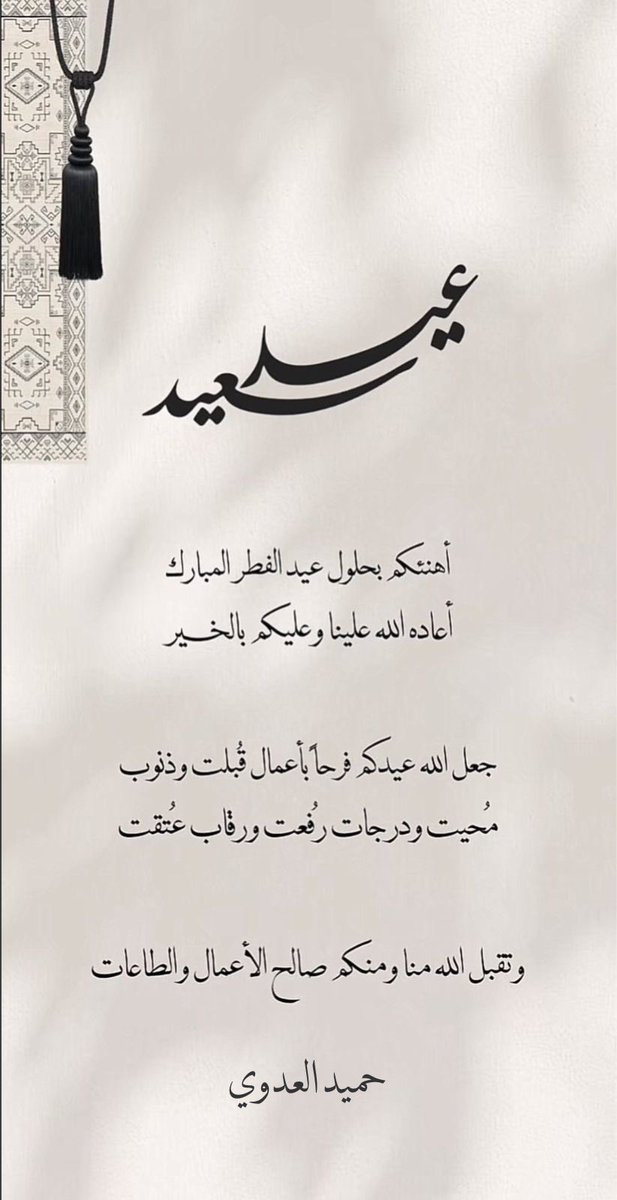 عيد سعيد
أهنئكم بحلول عيد الفطر المبارك
أعاده الله علينا وعليكم بالخير
جعل الله عيدكم فرحاً بأعمال قُبلت وذنوب
مُحيت ودرجات رُفعت ورقاب عُتقت
وتقبل الله منا ومنكم صالح الأعمال والطاعات
حميد العدوي